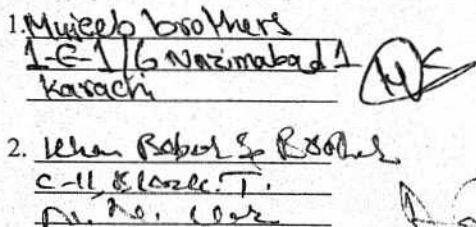 1. Mujeeb brothers
1-E-1/6 Nazimabad 1
Karachi
2. Khan Babar & Brother
C-11, Block. T.